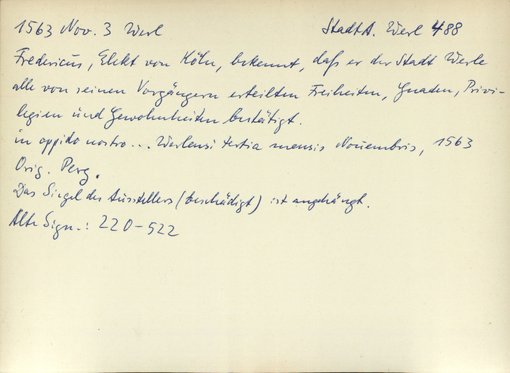 1563 Nov. 3 Werl StadtA. Werl 488
Fredericus, Elekt von Köln, bekennt, daß er der Stadt Werle
alle von seinen Vorgängern erteilten Freiheiten, Gnaden, Privi-
legien und Gewohnheiten bestätigt.
in oppido nostro... Werlensi tertia mensis Novembris, 1563
Orig. Perg.
Das Siegel des Ausstellers (beschädigt) ist angehängt.
Alte Sign.: 220-522